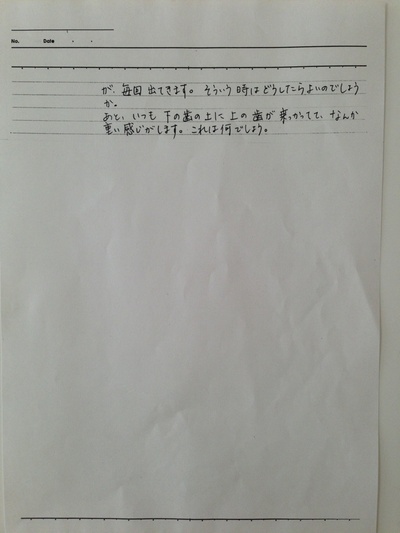 No.　Date　・　・
が、毎回出てきます。そういう時はどうしたらよいのでしょう
か。
あと、いつも下の歯の上に上の歯が乗っかってて、なんか
重い感じがします。これは何でしょう。